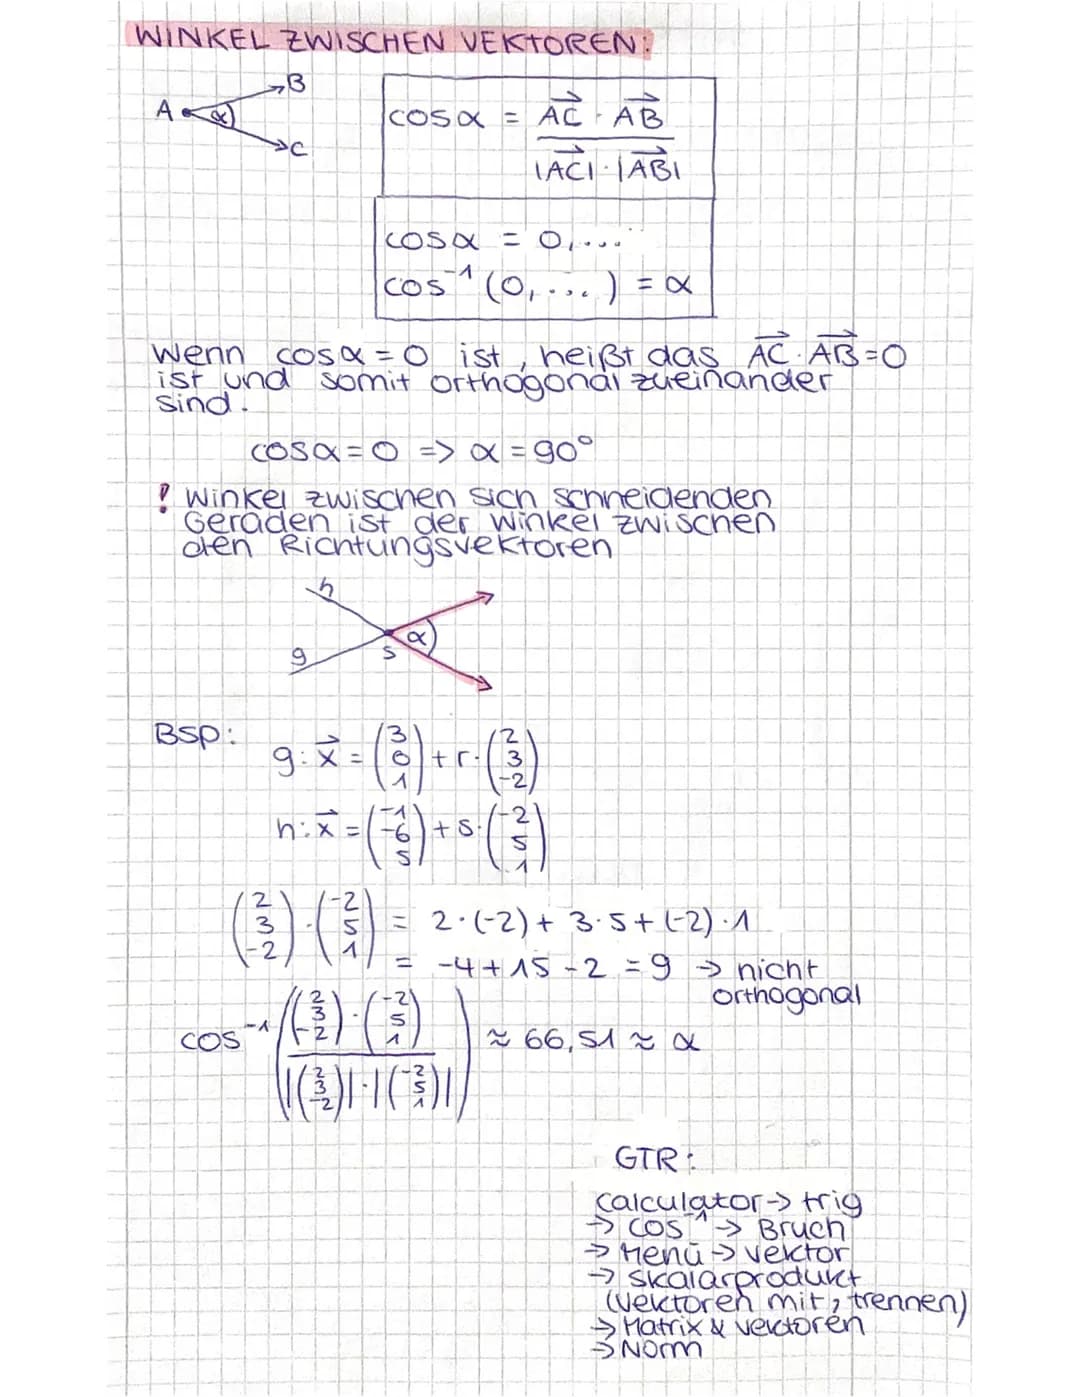 WINKEL ZWISCHEN VEKTOREN:
B
A α
C
cosα = AC · AB
|AC| · |AB|
cosα = 0,...
cos⁻¹ (0,...) = α
Wenn cosα = 0 ist, heißt das AC · AB = 0
ist und somit orthogonal zueinander
sind.
cosα = 0 => α = 90°
! Winkel zwischen sich schneidenden
Geraden ist der Winkel zwischen
den Richtungsvektoren
h
α
g S
BSP:
g: x⃗ = (3 0 1) + r · (2 3 -2)
h: x⃗ = (-1 -6 5) + s · (-2 5 1)
(2 3 -2) · (-2 5 1) = 2 · (-2) + 3 · 5 + (-2) · 1
= -4 + 15 - 2 = 9 → nicht
orthogonal
cos⁻¹ ((2 3 -2) · (-2 5 1) / |(2 3 -2)| · |(-2 5 1)|) ≈ 66,51 ≈ α
GTR:
Calculator → trig
→ cos⁻¹ → Bruch
→ Menü → Vektor
→ Skalarprodukt
(Vektoren mit , trennen)
→ Matrix & Vektoren
→ Norm